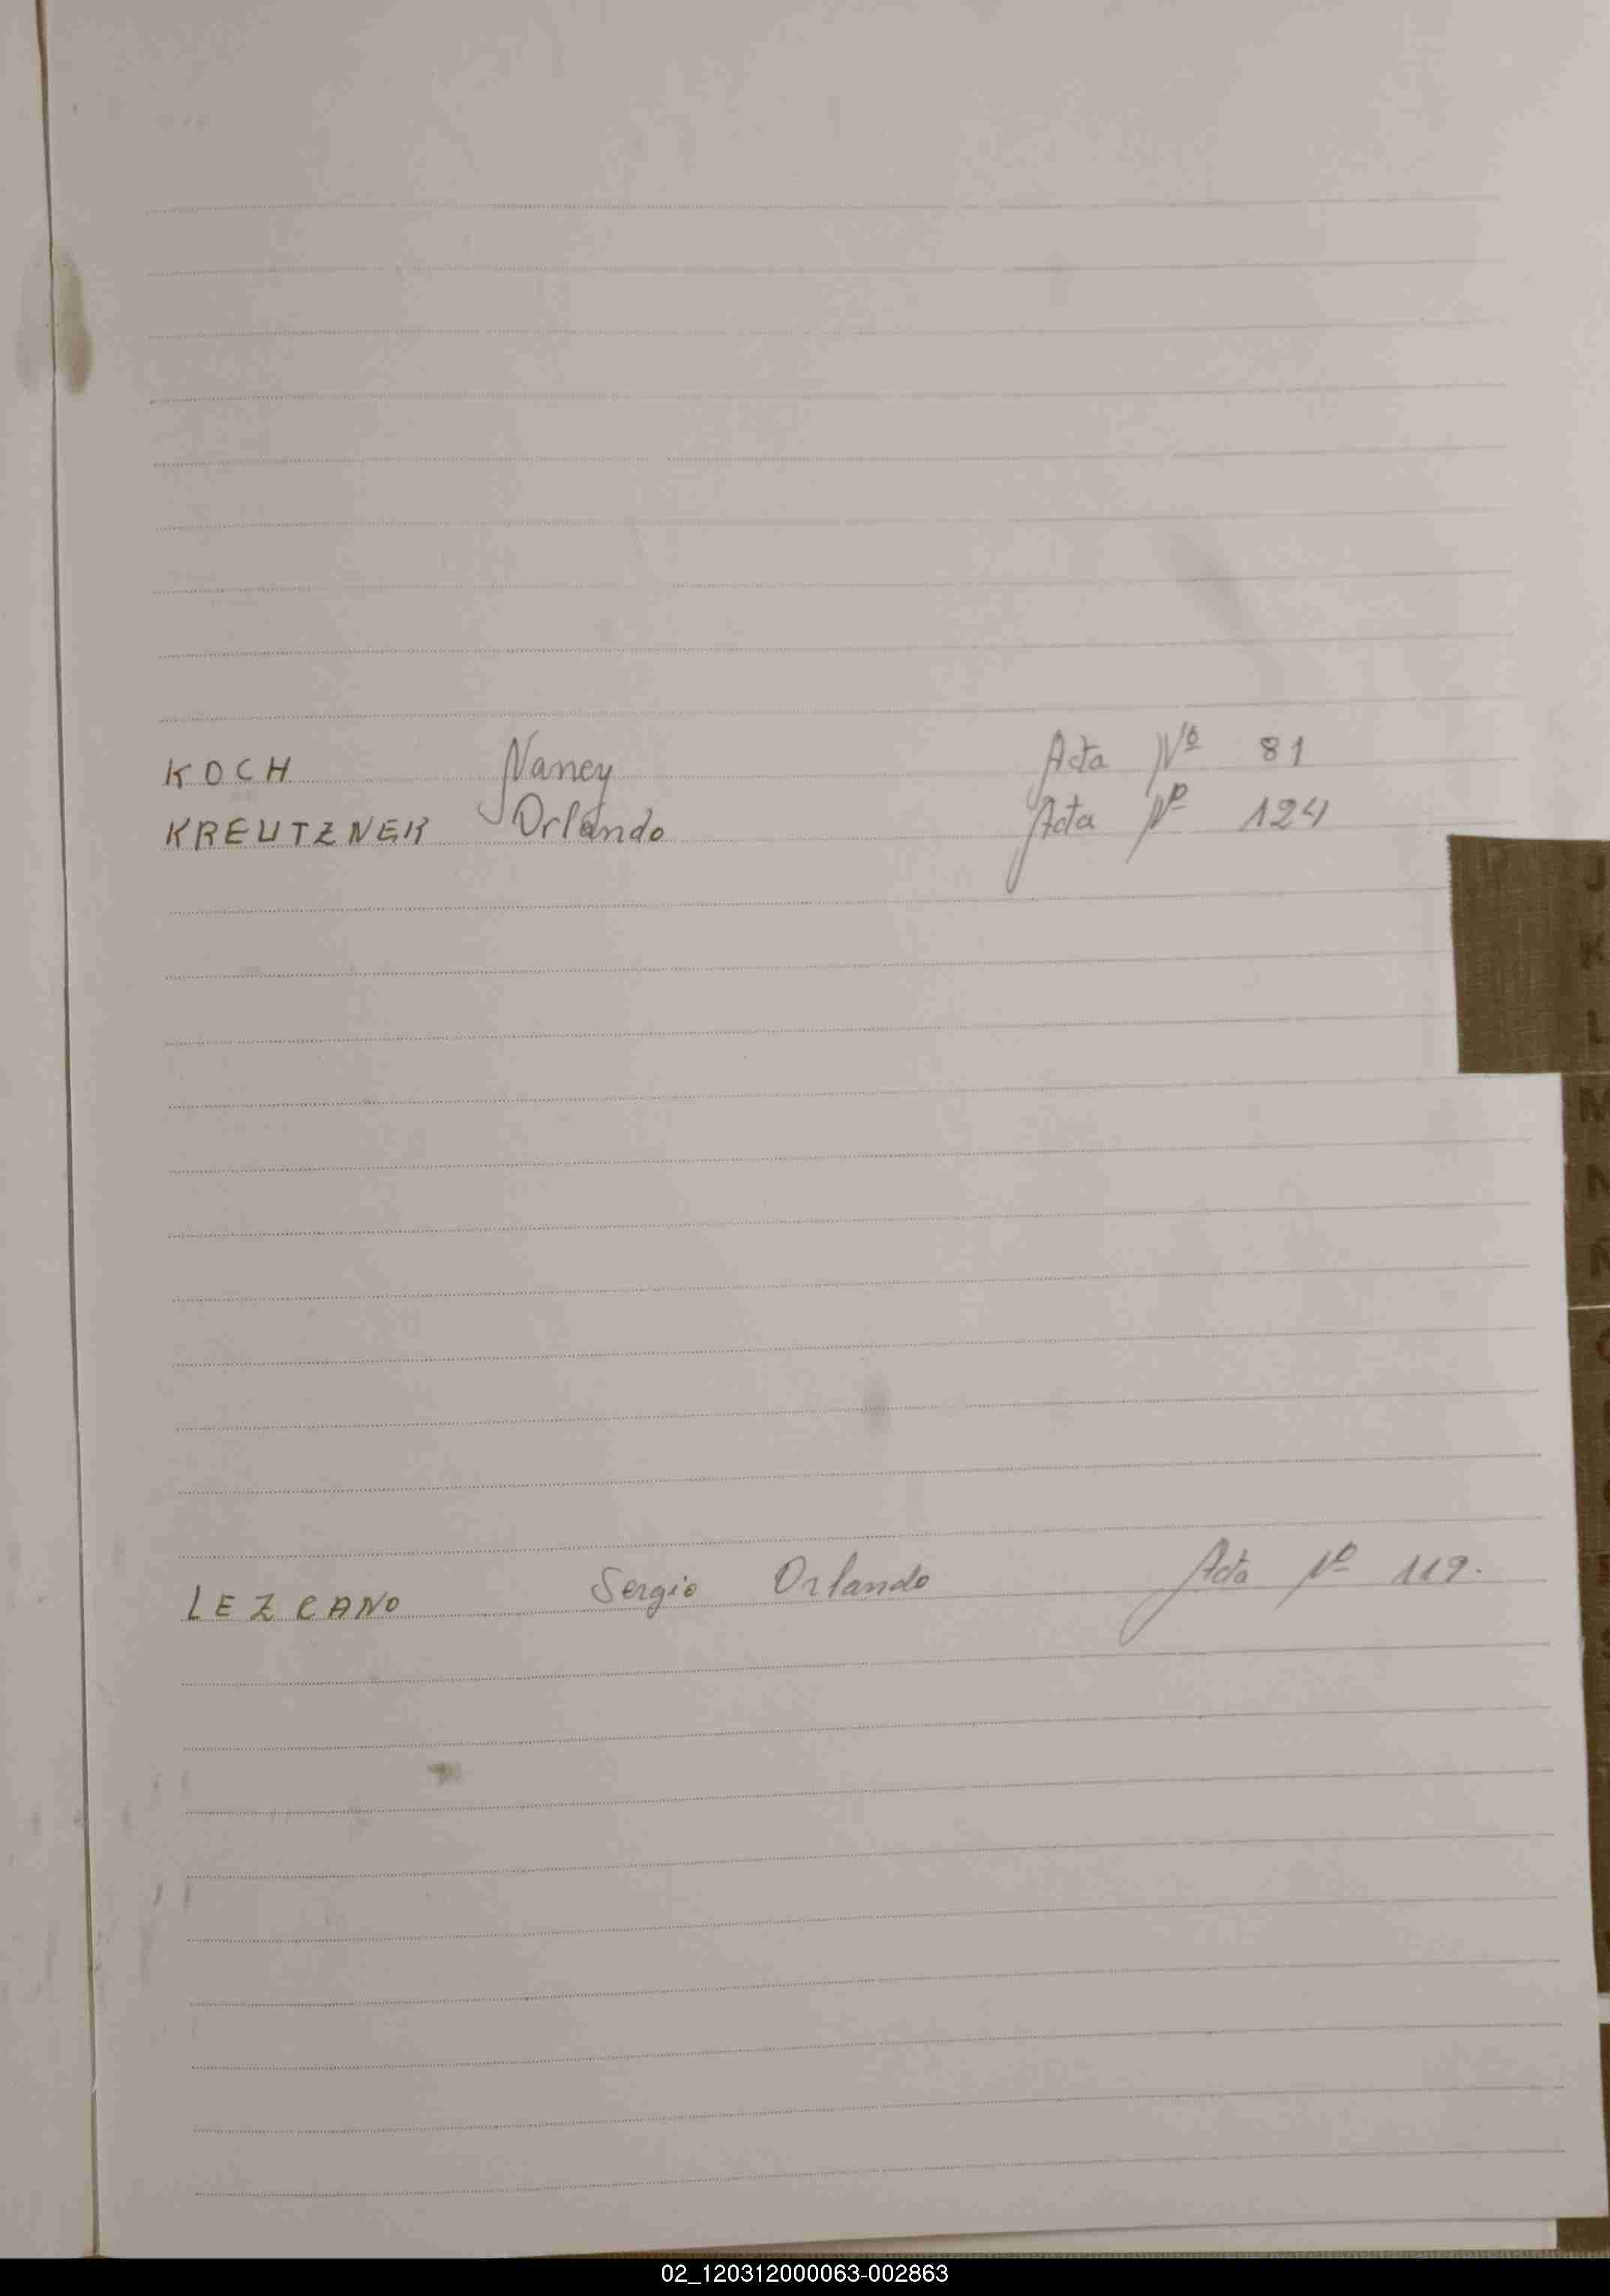 KOCH Nancy Acta Nº 81
KREUTZNER Orlando Acta Nº 124
J
K
L
M
N
Ñ
LEZCANO Sergio Orlando Acta Nº 119.
02_120312000063-002863